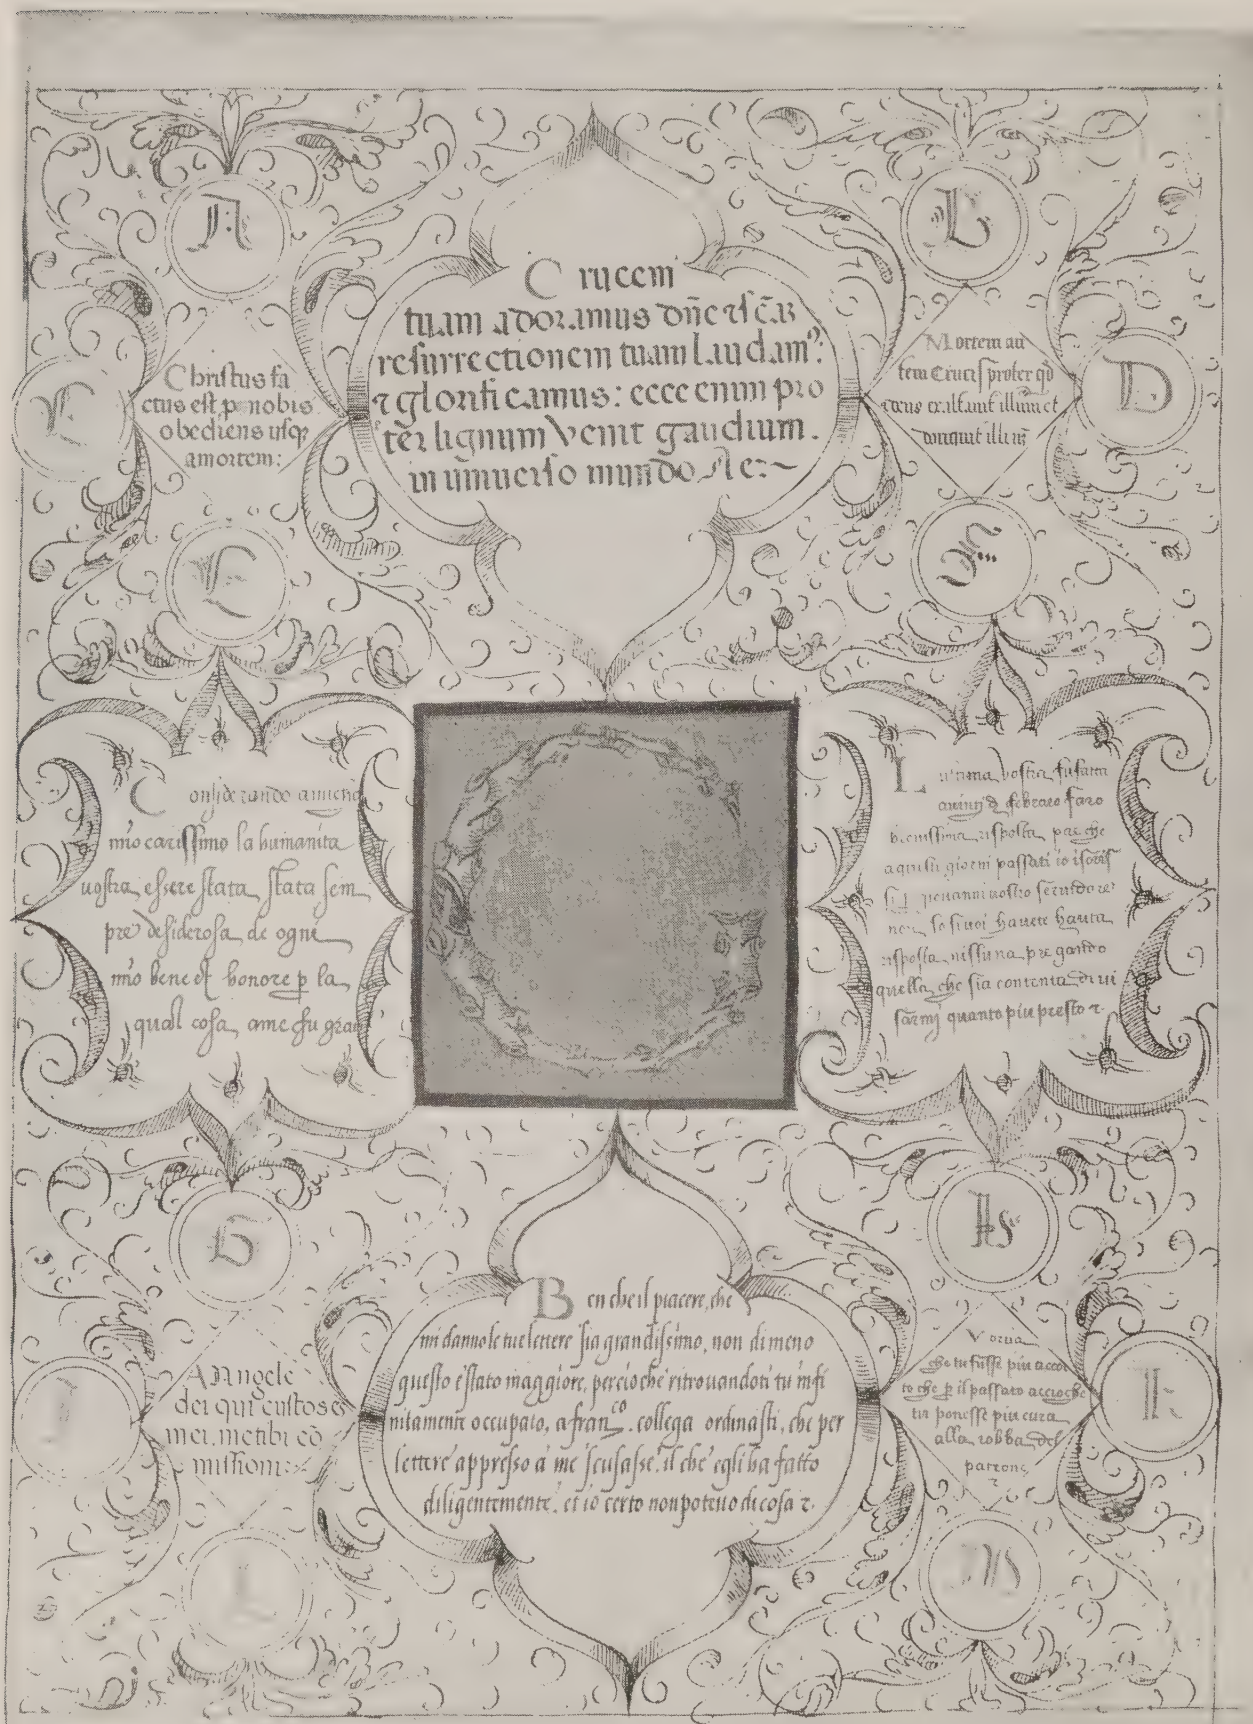 A
B
C rucem
tuam adoramus dñe et scãz
resurrectionem tuam laudam⁹:
⁊ glorificamus: ecce enim pro
ter lignum venit gaudium.
in universo mundo
C
Christus fa
ctus est p nobis
obediens usq
amortem:
Mortem au
tem Crucis propter qd
deus exaltavit illum et
D
E
C onsiderando amicho
mio carissimo la humanita
vostra essere stata stata sem
pre desiderosa de ogni
mio bene et honore p la
qual cosa ame fu gran
L ultima vostra fu fatta
a vinti d febraro faro
brevissima risposta per che
a questi giorni passati io iscris
giovanni vostro servidore
non so si voi havete hauta
risposta nissuna pregando
quella che sia contenta di vi
sarmi quanto piu presto ⁊.
G
B en che il piacere, che
mi danno le tue lettere sia grandissimo, non di meno
questo è stato maggiore, percioche ritrovandoti tu infi
nitamente occupato, a fran.co collega ordinasti, che per
lettere appresso a me scusasse, il che egli ha fatto
diligentemente, et io certo non potevo di cosa ⁊.
Angele
dei qui custos es
mei, me tibi cō
missiom:
Voria
che tu fusse piu accor
to che p il passato accioche
tu ponesse piu cura
alla robba del
patrone
⁊
I
K
L
M